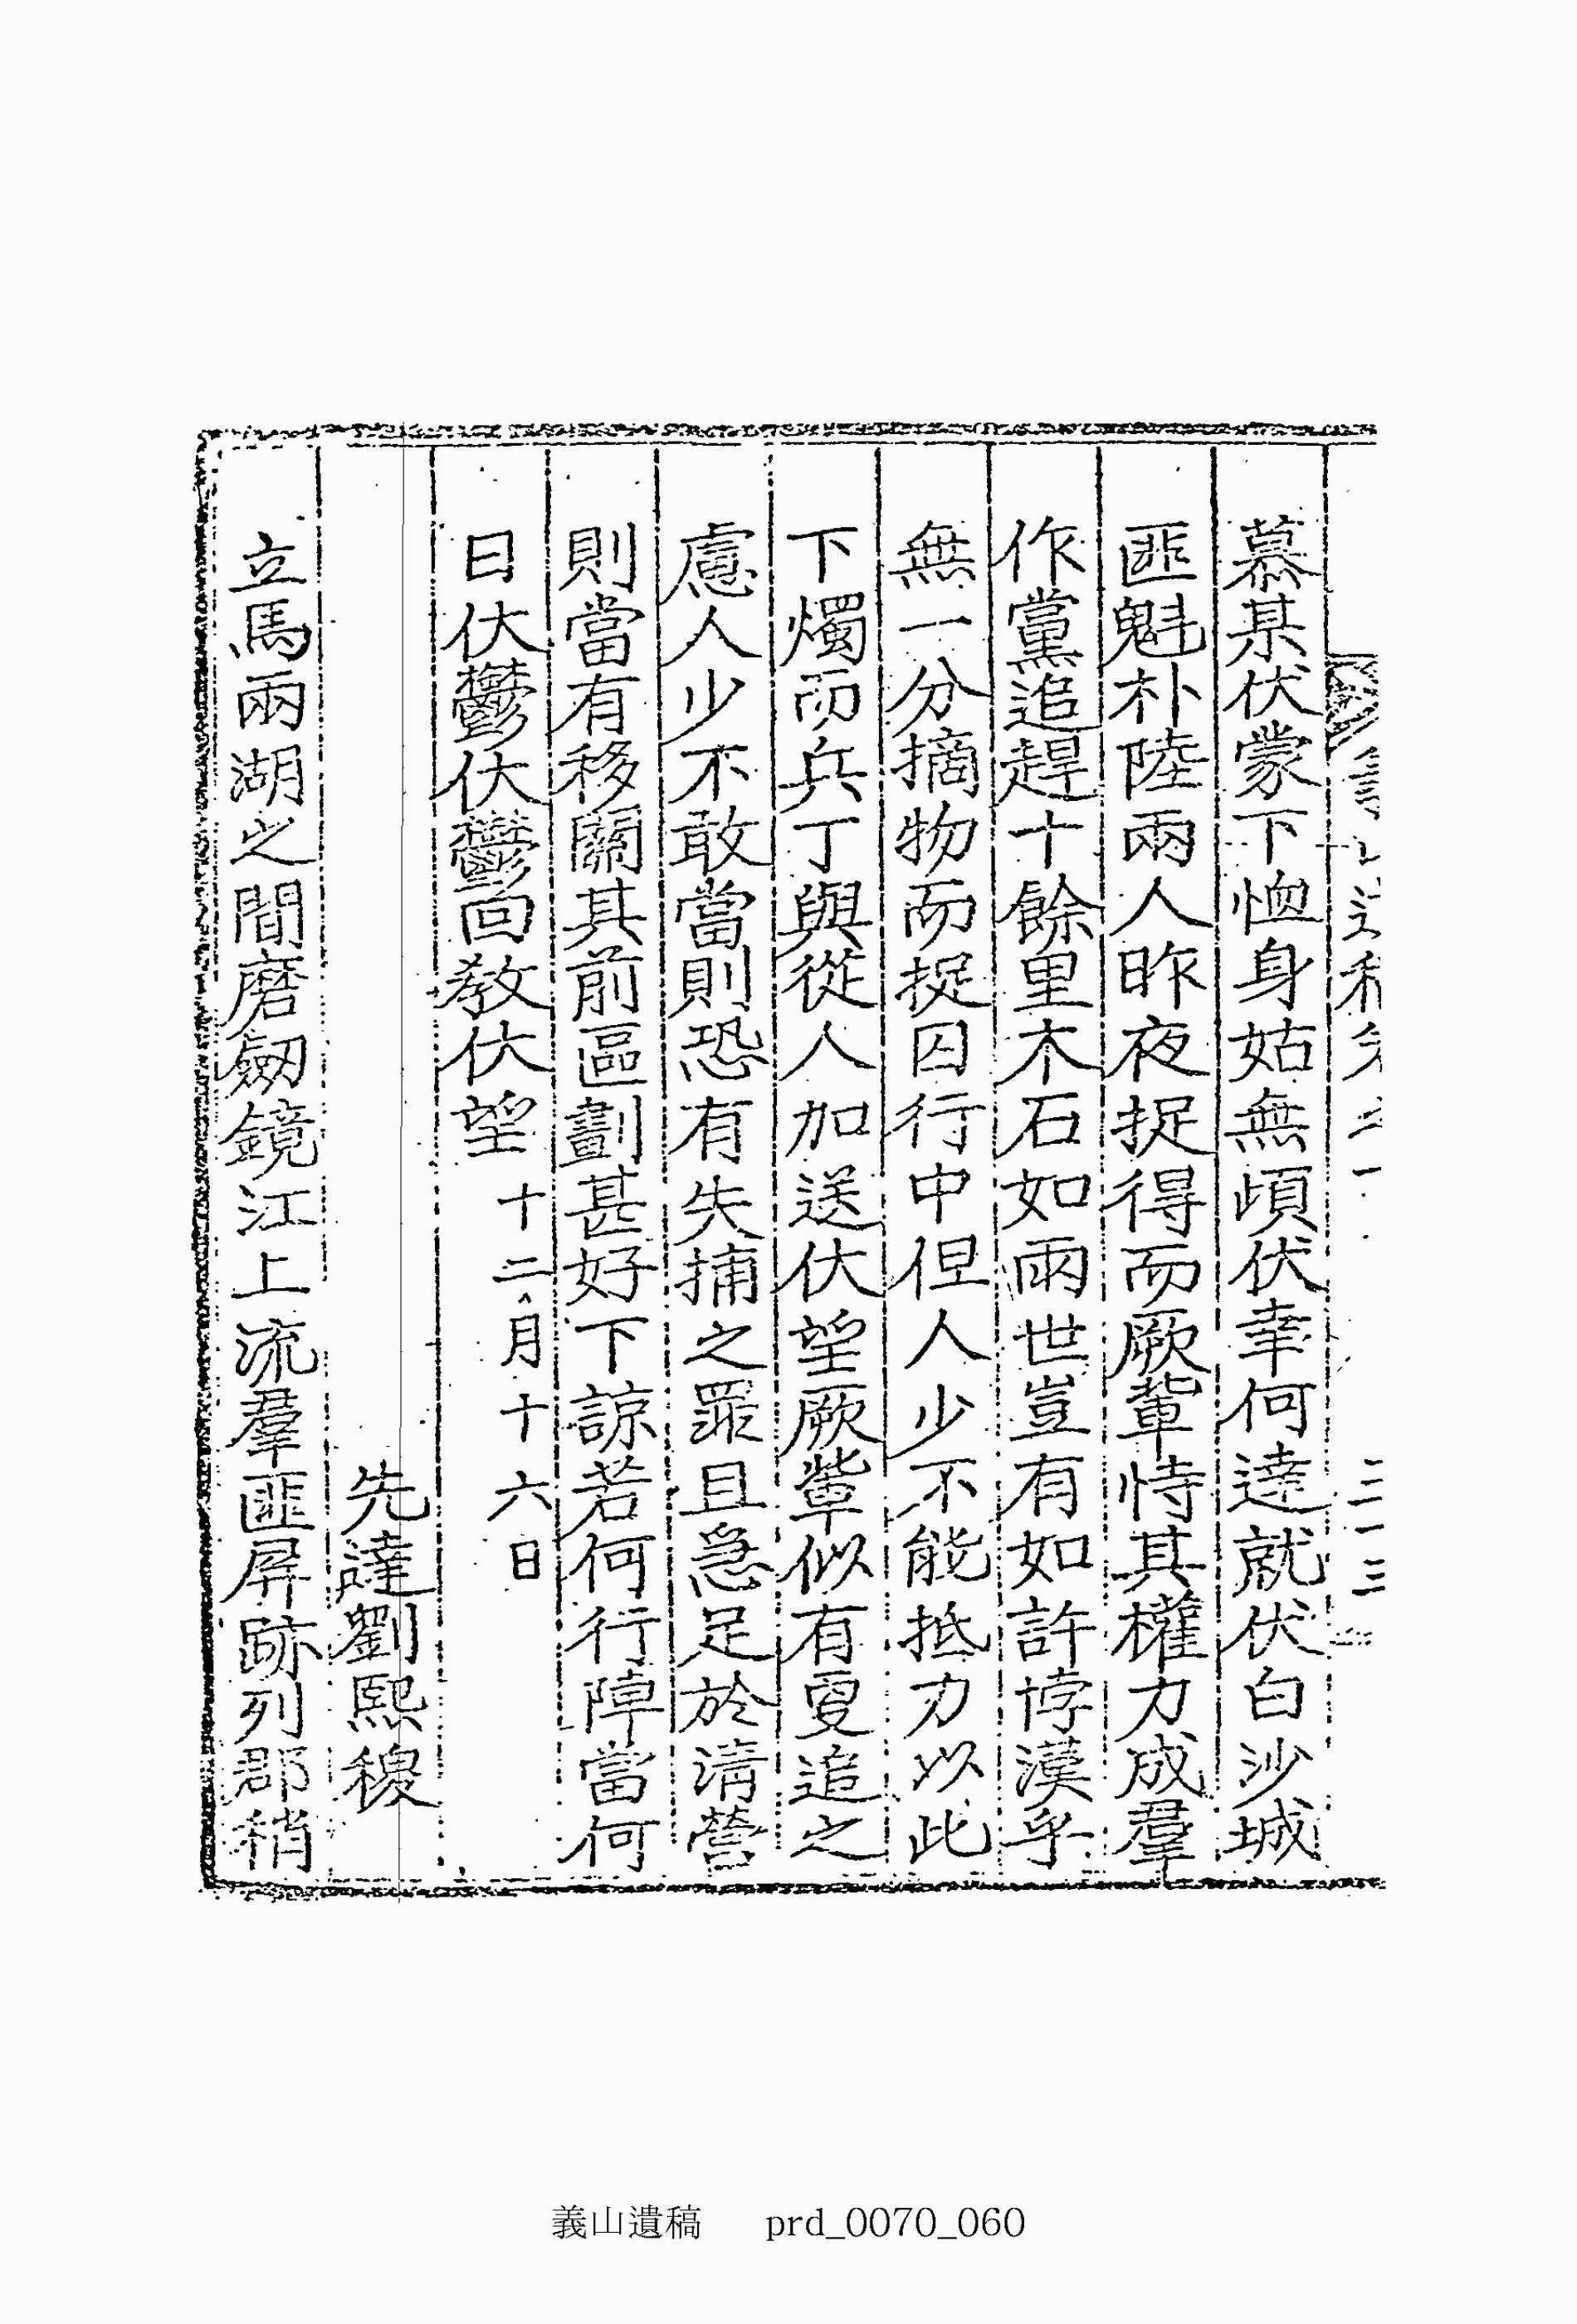 慕某伏蒙下恤身姑無頉伏幸何達就伏白沙城
匪魁朴陸兩人昨夜捉得而厥輩恃其權力成羣
作黨追趕十餘里木石如雨世豈有如許悖漢乎
無一分摘物而捉囚行中但人少不能抵力以此
下燭而兵丁與從人加送伏望厥輩似有更追之
慮人少不敢當則恐有失捕之罪且急足於淸營
則當有移關其前區劃甚好下諒若何行陣當何
日伏鬱伏鬱回敎伏望 十二月十六日
先達劉熙稷
立馬兩湖之間磨劒鏡江上流羣匪屛跡列郡稍
義山遺稿 prd_0070_060